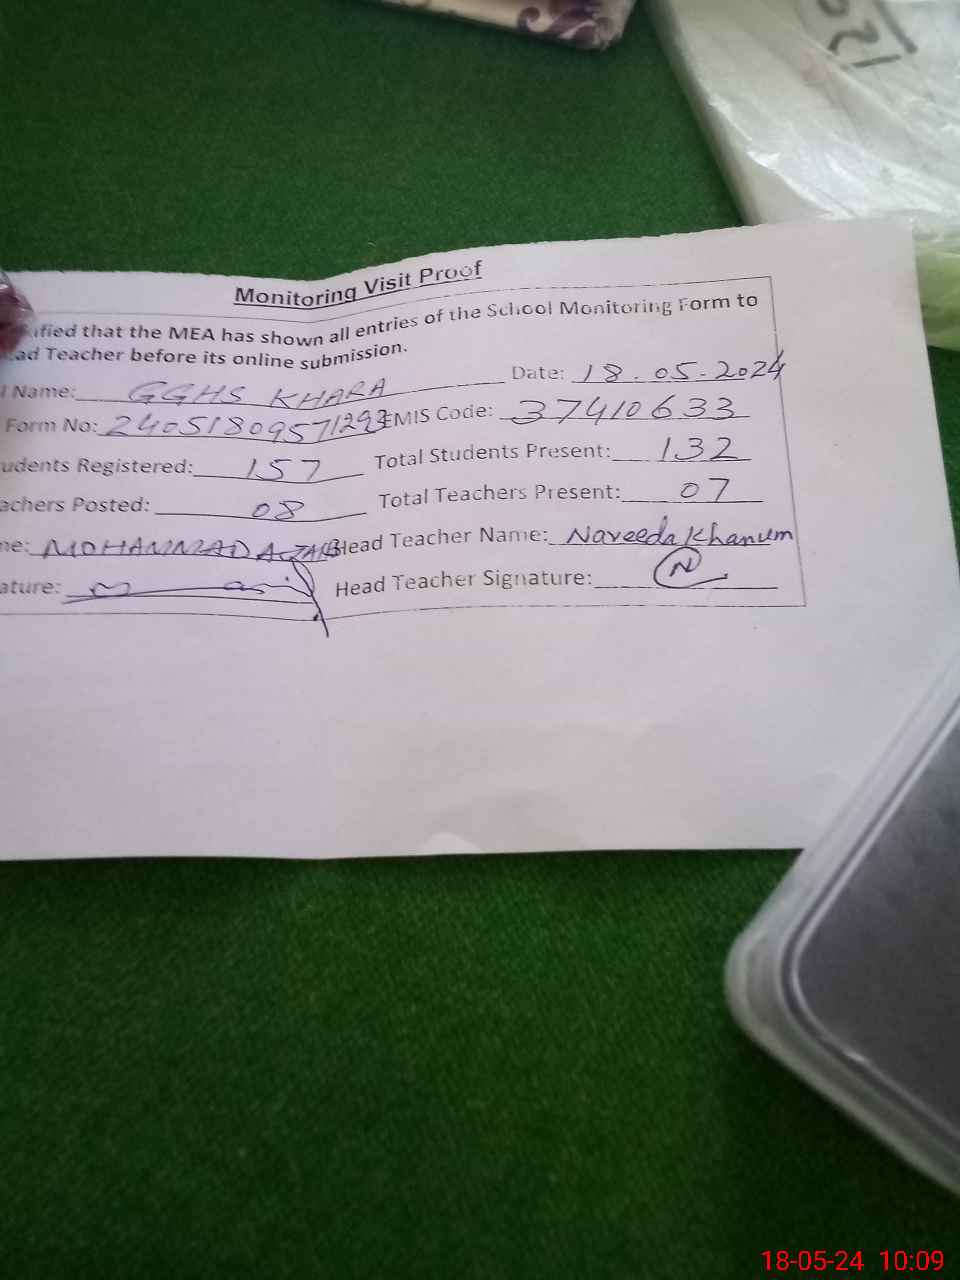 Monitoring Visit Proof
ified that the MEA has shown all entries of the School Monitoring Form to
ad Teacher before its online submission.
l Name: GGHS KHARA Date: 18.05-2024
Form No: EMIS Code: 37410633
udents Registered: 157 Total Students Present: 132
achers Posted: 08 Total Teachers Present: 07
me: MOHAMMAD Head Teacher Name: Naveeda Khanum
ature: Head Teacher Signature: N
18-05-24 10:09